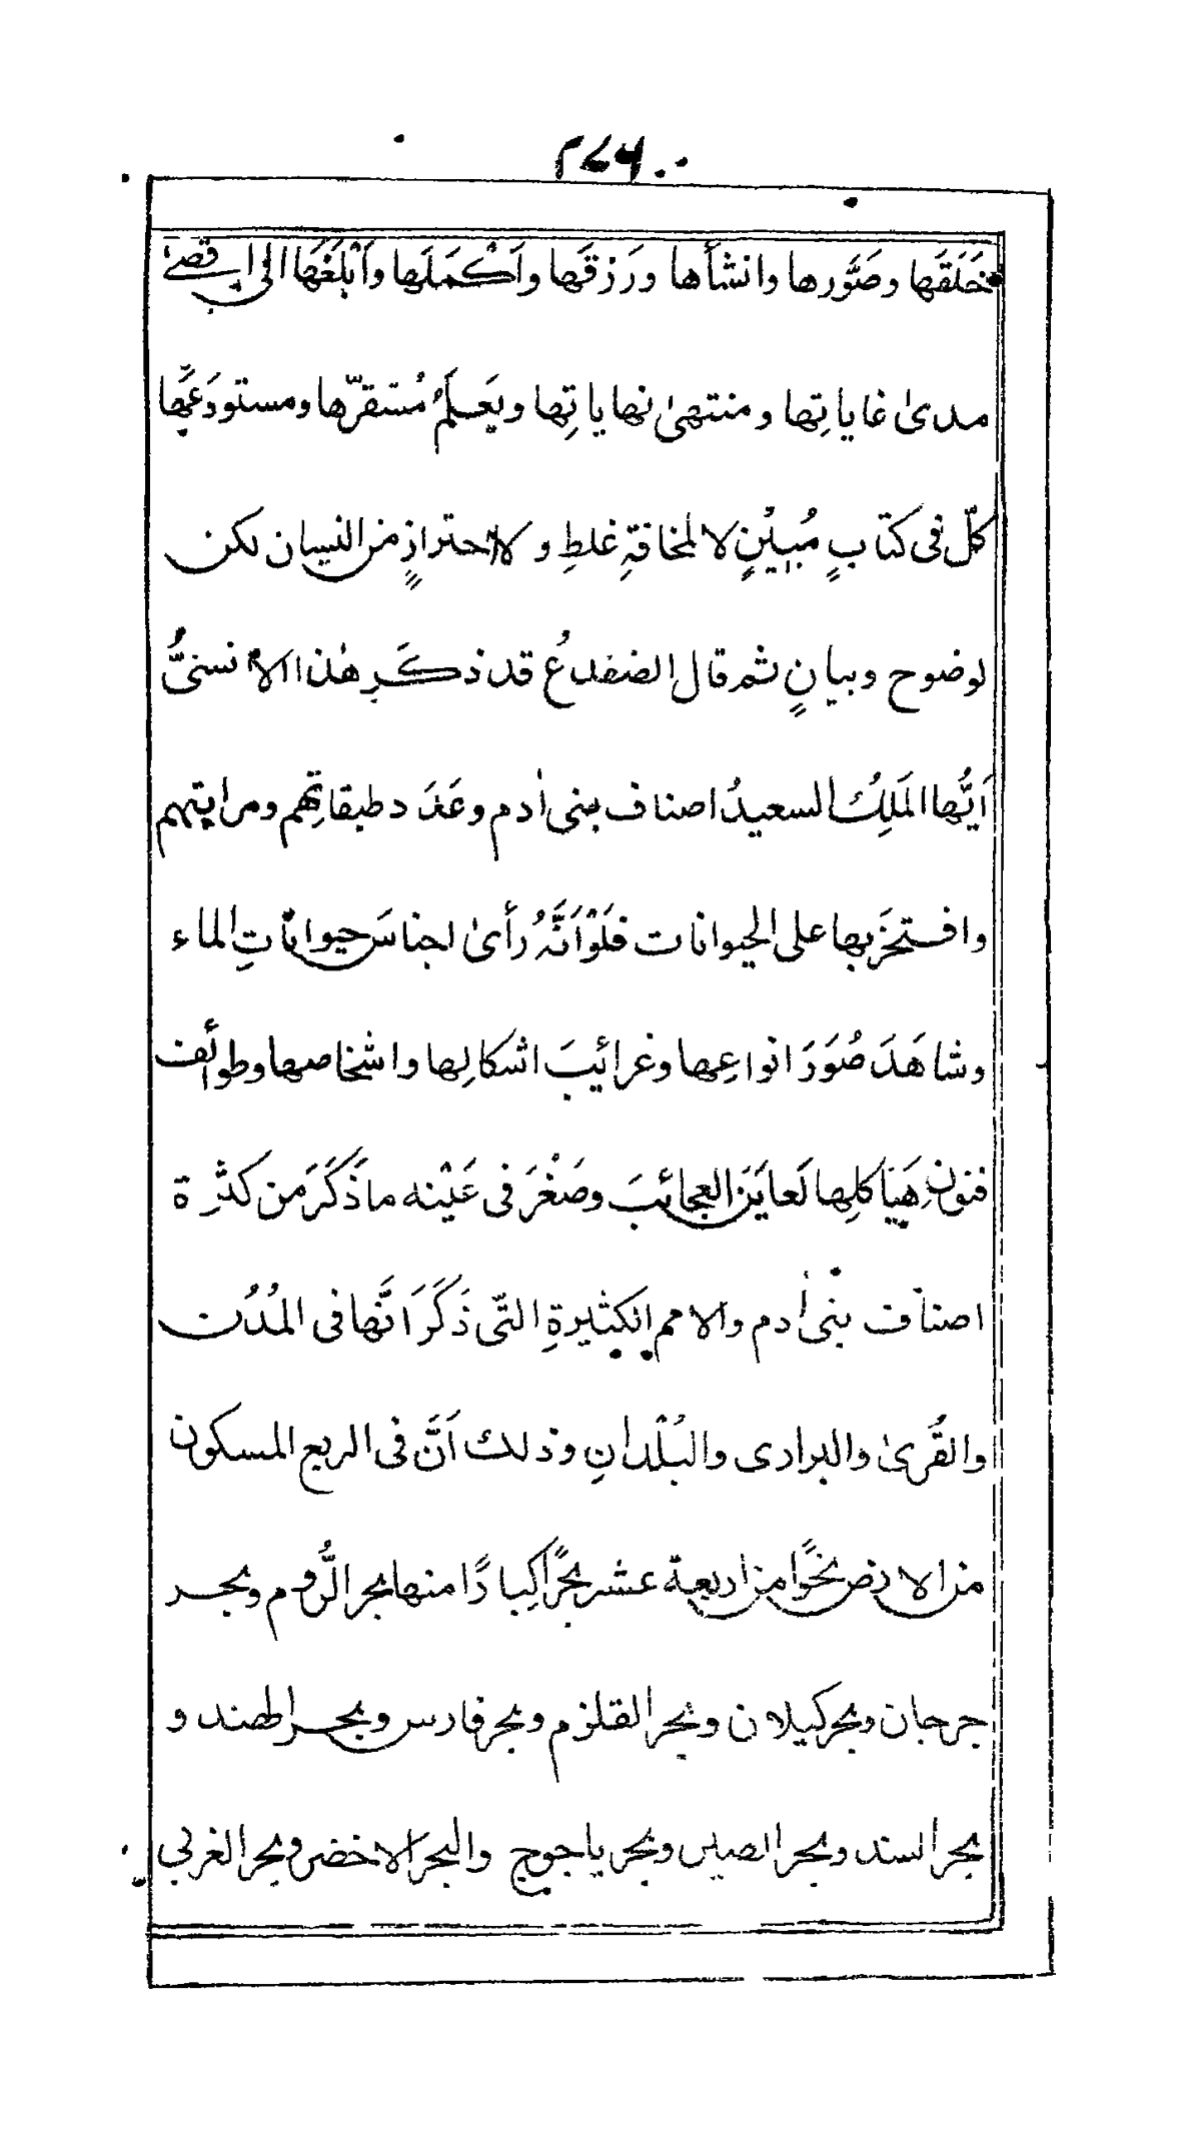 ۲۷۶
خَلَقَها وصَوَّرها وانشأها ورَزقَها واَكْمَلَها واَبْلَغَها الى اقصےٰ
مدىٰ غاياتِها ومنتهىٰ نهاياتِها ويَعلَمُ مُستقرّها ومستودَعَها
كلّ فى كتابٍ مُبِيْنٍ لا لمخافةِ غلطٍ ولا احترازٍ من النسيان لكن
لوضوح وبيانٍ ثم قال الضفدعُ قد ذكَر هٰذا الانسىُّ
اَيُّها المَلِكُ السعيدُ اصناف بنى اٰدم وعَدَدَ طبقاتِهم ومراتبهم
وافتخَر بها على الحيوانات فلَوْ اَنَّهُ رأىٰ اجناسَ حيواناتِ الماء
وشاهَدَ صُوَرَ انواعِها وغرائيبَ اشكالِها واشخاصها وطوائف
فنون هَيَاكلِها لَعايَنَ العجائبَ وصَغُرَ فى عَيْنه ما ذَكَرَ من كثرة
اصناف بنى اٰدم والامم الكثيرةِ التّى ذَكَرَ اَنَّها فى المُدُن
والقُرىٰ والبرارى والبُلْدانِ وذلك اَنَّ فى الربع المسكون
من الارض نحوًا من اربعة عشر بحرًا كِبارًا منها بحر الرُّوم وبحر
جرجان وبحر كيلان وبحر القلزم وبحر فارس وبحر الهند و
بحر السند وبحر الصين وبحر ياجوج والبحر الاخضر وبحر الغربي